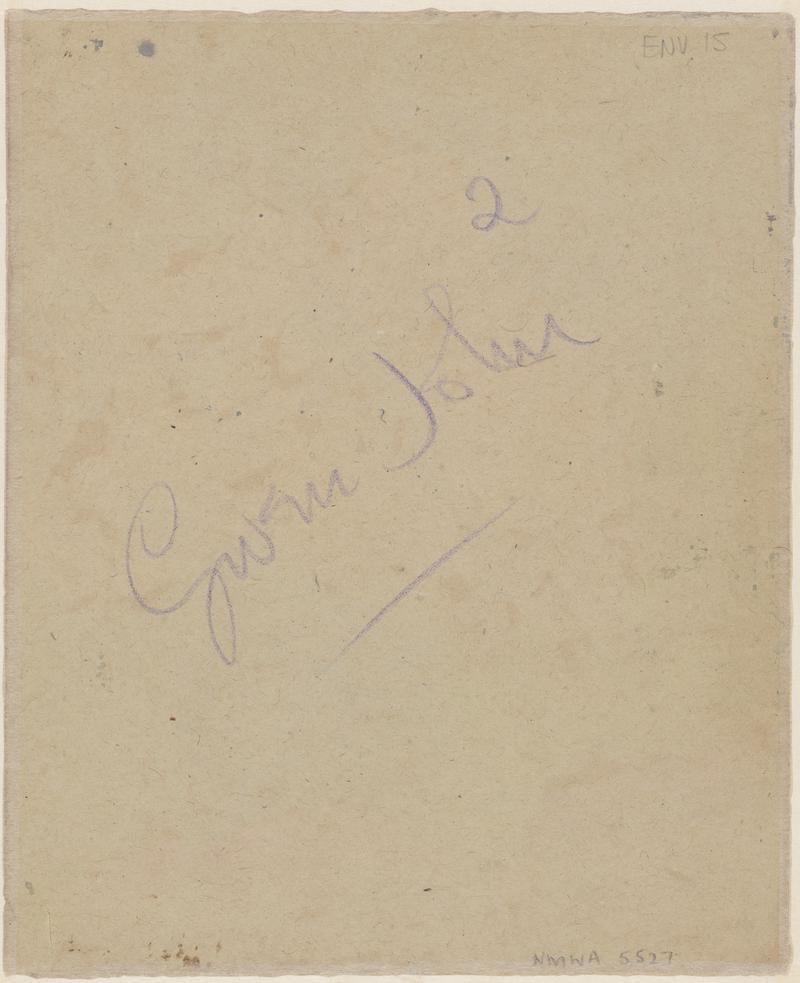 ENV 15
2
Gwen John
NMWA 5527